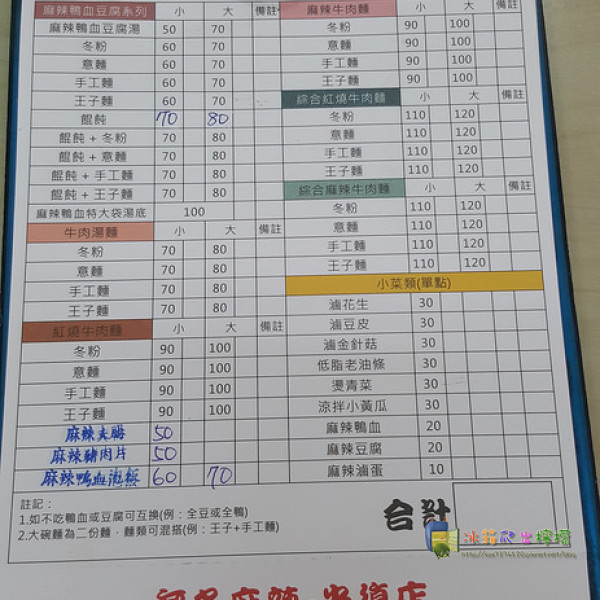 麻辣鴨血豆腐系列 小 大 備註
麻辣鴨血豆腐湯 50 70
冬粉 60 70
意麵 60 70
手工麵 60 70
王子麵 60 70
餛飩 70 80
餛飩+冬粉 70 80
餛飩+意麵 70 80
餛飩+手工麵 70 80
餛飩+王子麵 70 80
麻辣鴨血特大袋湯底 100
牛肉湯麵 小 大 備註
冬粉 70 80
意麵 70 80
手工麵 70 80
王子麵 70 80
紅燒牛肉麵 小 大 備註
冬粉 90 100
意麵 90 100
手工麵 90 100
王子麵 90 100
麻辣大腸 50
麻辣豬肉片 50
麻辣鴨血泡飯 60 70
麻辣牛肉麵 小 大 備註
冬粉 90 100
意麵 90 100
手工麵 90 100
王子麵 90 100
綜合紅燒牛肉麵 小 大 備註
冬粉 110 120
意麵 110 120
手工麵 110 120
王子麵 110 120
綜合麻辣牛肉麵 小 大 備註
冬粉 110 120
意麵 110 120
手工麵 110 120
王子麵 110 120
小菜類(單點)
滷花生 30
滷豆皮 30
滷金針菇 30
低脂老油條 30
燙青菜 30
涼拌小黃瓜 30
麻辣鴨血 20
麻辣豆腐 20
麻辣滷蛋 10
註記:
1.如不吃鴨血或豆腐可互換(例:全豆或全鴨)
2.大碗麵為二份麵,麵類可混搭(例:王子+手工麵)
合計